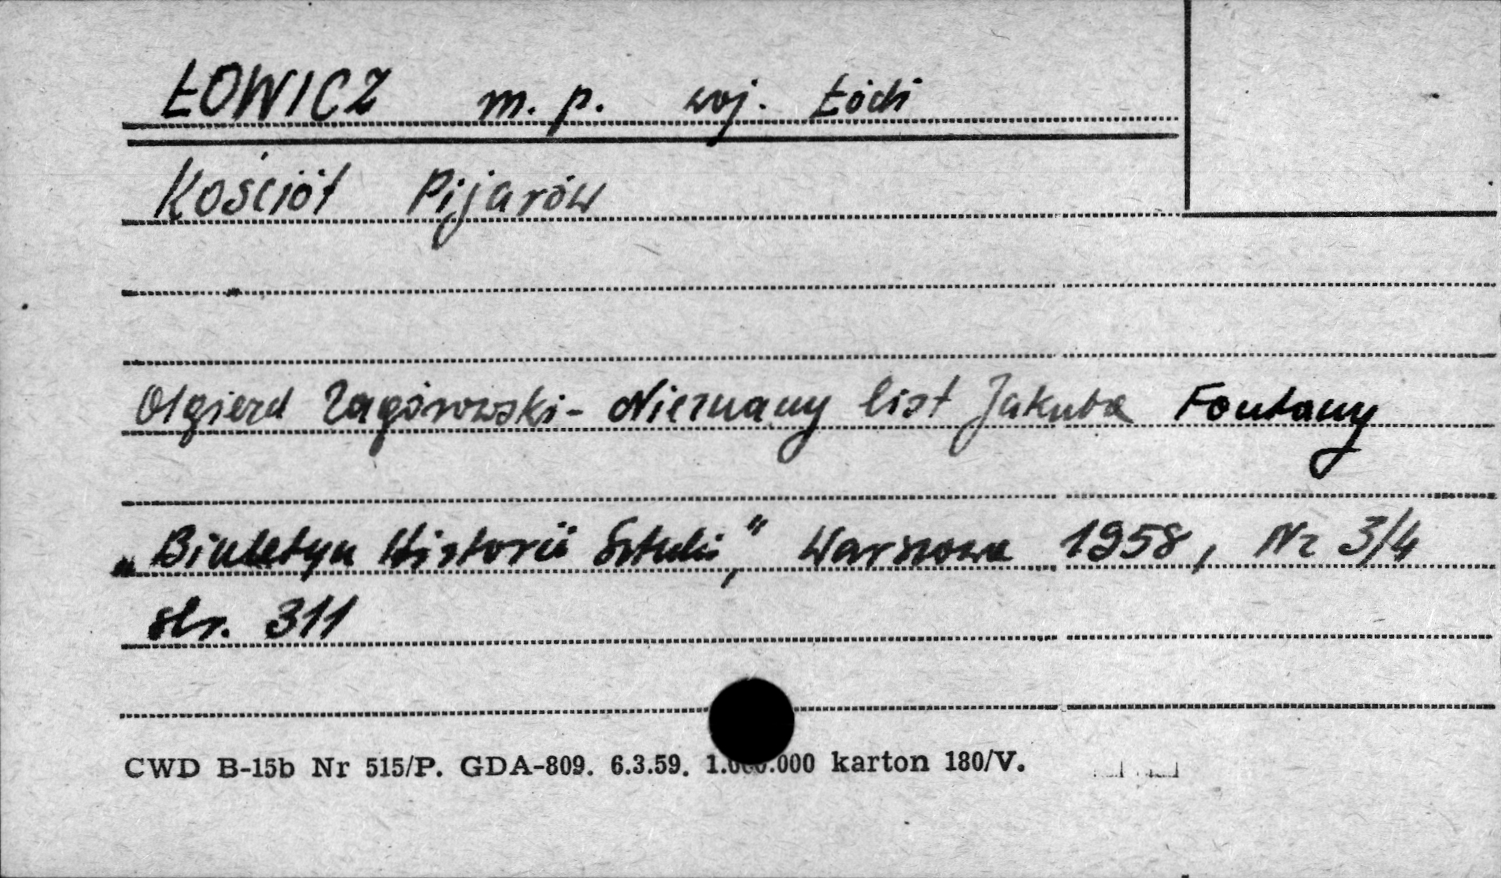 ŁOWICZ m. p. woj. Łódź
Kościół Pijarów
Olgierd Zagórowski - Nieznany list Jakuba Fontany
„Biuletyn Historii Sztuki", Warszawa 1958, Nr 3/4
str. 311
CWD B-15b Nr 515/P. GDA-809. 6.3.59. 1.000.000 karton 180/V.